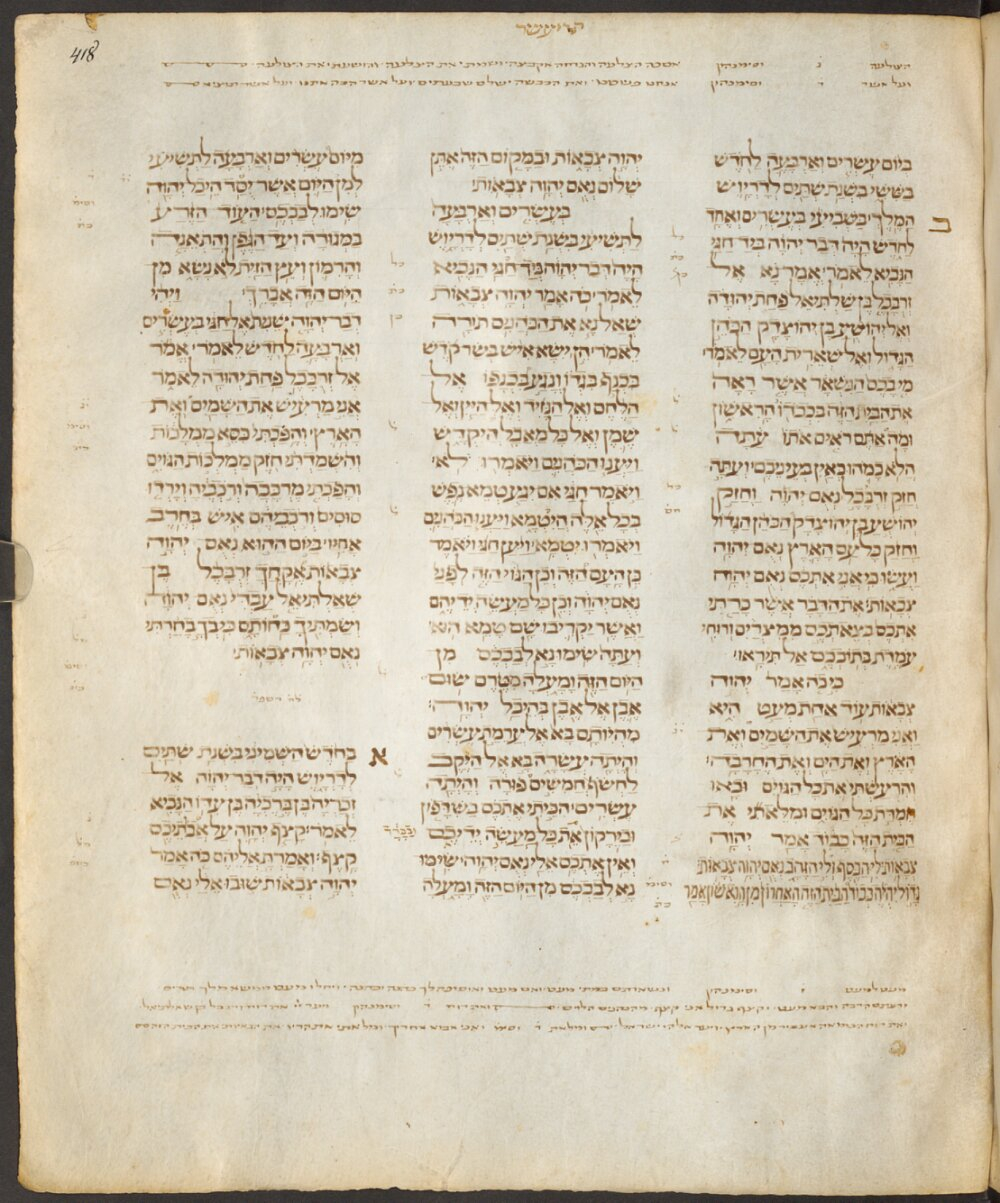 418
תרי עשר
ביום עשרים וארבעה לחדש
בששי בשנת שתים לדריוש
ב
המלך בשביעי בעשרים ואחד
לחדש היה דבר יהוה ביד חגי
הנביא לאמר אמר נא אל
זרבבל בן שלתיאל פחת יהודה
ואל יהושע בן יהוצדק הכהן
הגדול ואל שארית העם לאמר
מי בכם הנשאר אשר ראה
את הבית הזה בכבודו הראשון
ומה אתם ראים אתו עתה
הלא כמהו כאין בעיניכם ועתה
חזק זרבבל נאם יהוה וחזק
יהושע בן יהוצדק הכהן הגדול
וחזק כל עם הארץ נאם יהוה
ועשו כי אני אתכם נאם יהוה
צבאות את הדבר אשר כרתי
אתכם בצאתכם ממצרים ורוחי
עמדת בתוככם אל תיראו
כי כה אמר יהוה
צבאות עוד אחת מעט היא
ואני מרעיש את השמים ואת
הארץ ואת הים ואת החרבה
והרעשתי את כל הגוים ובאו
חמדת כל הגוים ומלאתי את
הבית הזה כבוד אמר יהוה
צבאות לי הכסף ולי הזהב נאם יהוה צבאות
גדול יהיה כבוד הבית הזה האחרון מן הראשון אמר
יהוה צבאות ובמקום הזה אתן
שלום נאם יהוה צבאות
בעשרים וארבעה
לתשיעי בשנת שתים לדריוש
היה דבר יהוה ביד חגי הנביא
לאמר כה אמר יהוה צבאות
שאל נא את הכהנים תורה
לאמר הן ישא איש בשר קדש
בכנף בגדו ונגע בכנפו אל
הלחם ואל הנזיד ואל היין ואל
שמן ואל כל מאכל היקדש
ויענו הכהנים ויאמרו לא
ויאמר חגי אם יגע טמא נפש
בכל אלה היטמא ויענו הכהנים
ויאמרו יטמא ויען חגי ויאמר
כן העם הזה וכן הגוי הזה לפני
נאם יהוה וכן כל מעשה ידיהם
ואשר יקריבו שם טמא הוא
ועתה שימו נא לבבכם מן
היום הזה ומעלה מטרם שום
אבן אל אבן בהיכל יהוה
מהיותם בא אל ערמת עשרים
והיתה עשרה בא אל היקב
לחשף חמשים פורה והיתה
עשרים הכיתי אתכם בשדפון
ובירקון ובברד את כל מעשה ידיכם
ואין אתכם אלי נאם יהוה שימו
נא לבבכם מן היום הזה ומעלה
מיום עשרים וארבעה לתשיעי
למן היום אשר יסד היכל יהוה
שימו לבבכם העוד הזרע
במגורה ועד הגפן והתאנה
והרמון ועץ הזית לא נשא מן
היום הזה אברך ויהי
דבר יהוה שנית אל חגי בעשרים
וארבעה לחדש לאמר אמר
אל זרבבל פחת יהודה לאמר
אני מרעיש את השמים ואת
הארץ והפכתי כסא ממלכות
והשמדתי חזק ממלכות הגוים
והפכתי מרכבה ורכביה וירדו
סוסים ורכביהם איש בחרב
אחיו ביום ההוא נאם יהוה
צבאות אקחך זרבבל בן
שאלתיאל עבדי נאם יהוה
ושמתיך כחותם כי בך בחרתי
נאם יהוה צבאות
א
בחדש השמיני בשנת שתים
לדריוש היה דבר יהוה אל
זכריה בן ברכיה בן עדו הנביא
לאמר קצף יהוה על אבתיכם
קצף ואמרת אליהם כה אמר
יהוה צבאות שובו אלי נאם